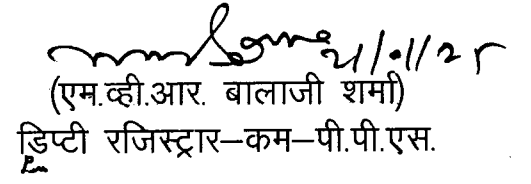 21/01/25
(एम.व्ही.आर. बालाजी शर्मा)
डिप्टी रजिस्ट्रार–कम–पी.पी.एस.